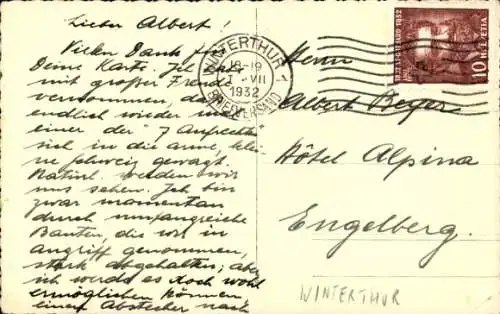 Lieber Albert!
Vielen Dank für
Deine Karte. Ich habe
mit großer Freude
vernommen, daß
endlich wieder in
einer der 7 Aufrechten
sich in die arme, klei-
ne Schweiz gewagt.
Natürl. werden wir
uns sehen. Ich bin
zwar momentan
durch umfangreiche
Bauten, die wir in
Angriff genommen,
stark abgehalten; aber
ich werde es doch wohl
ermöglichen können
einen Abstecher nach
WINTERTHUR 1
18-19
1. VII
1932
BRIEFVERSAND
HELVETIA
10
Herrn
Albert Beger
Hôtel Alpina
Engelberg.
WINTERTHUR